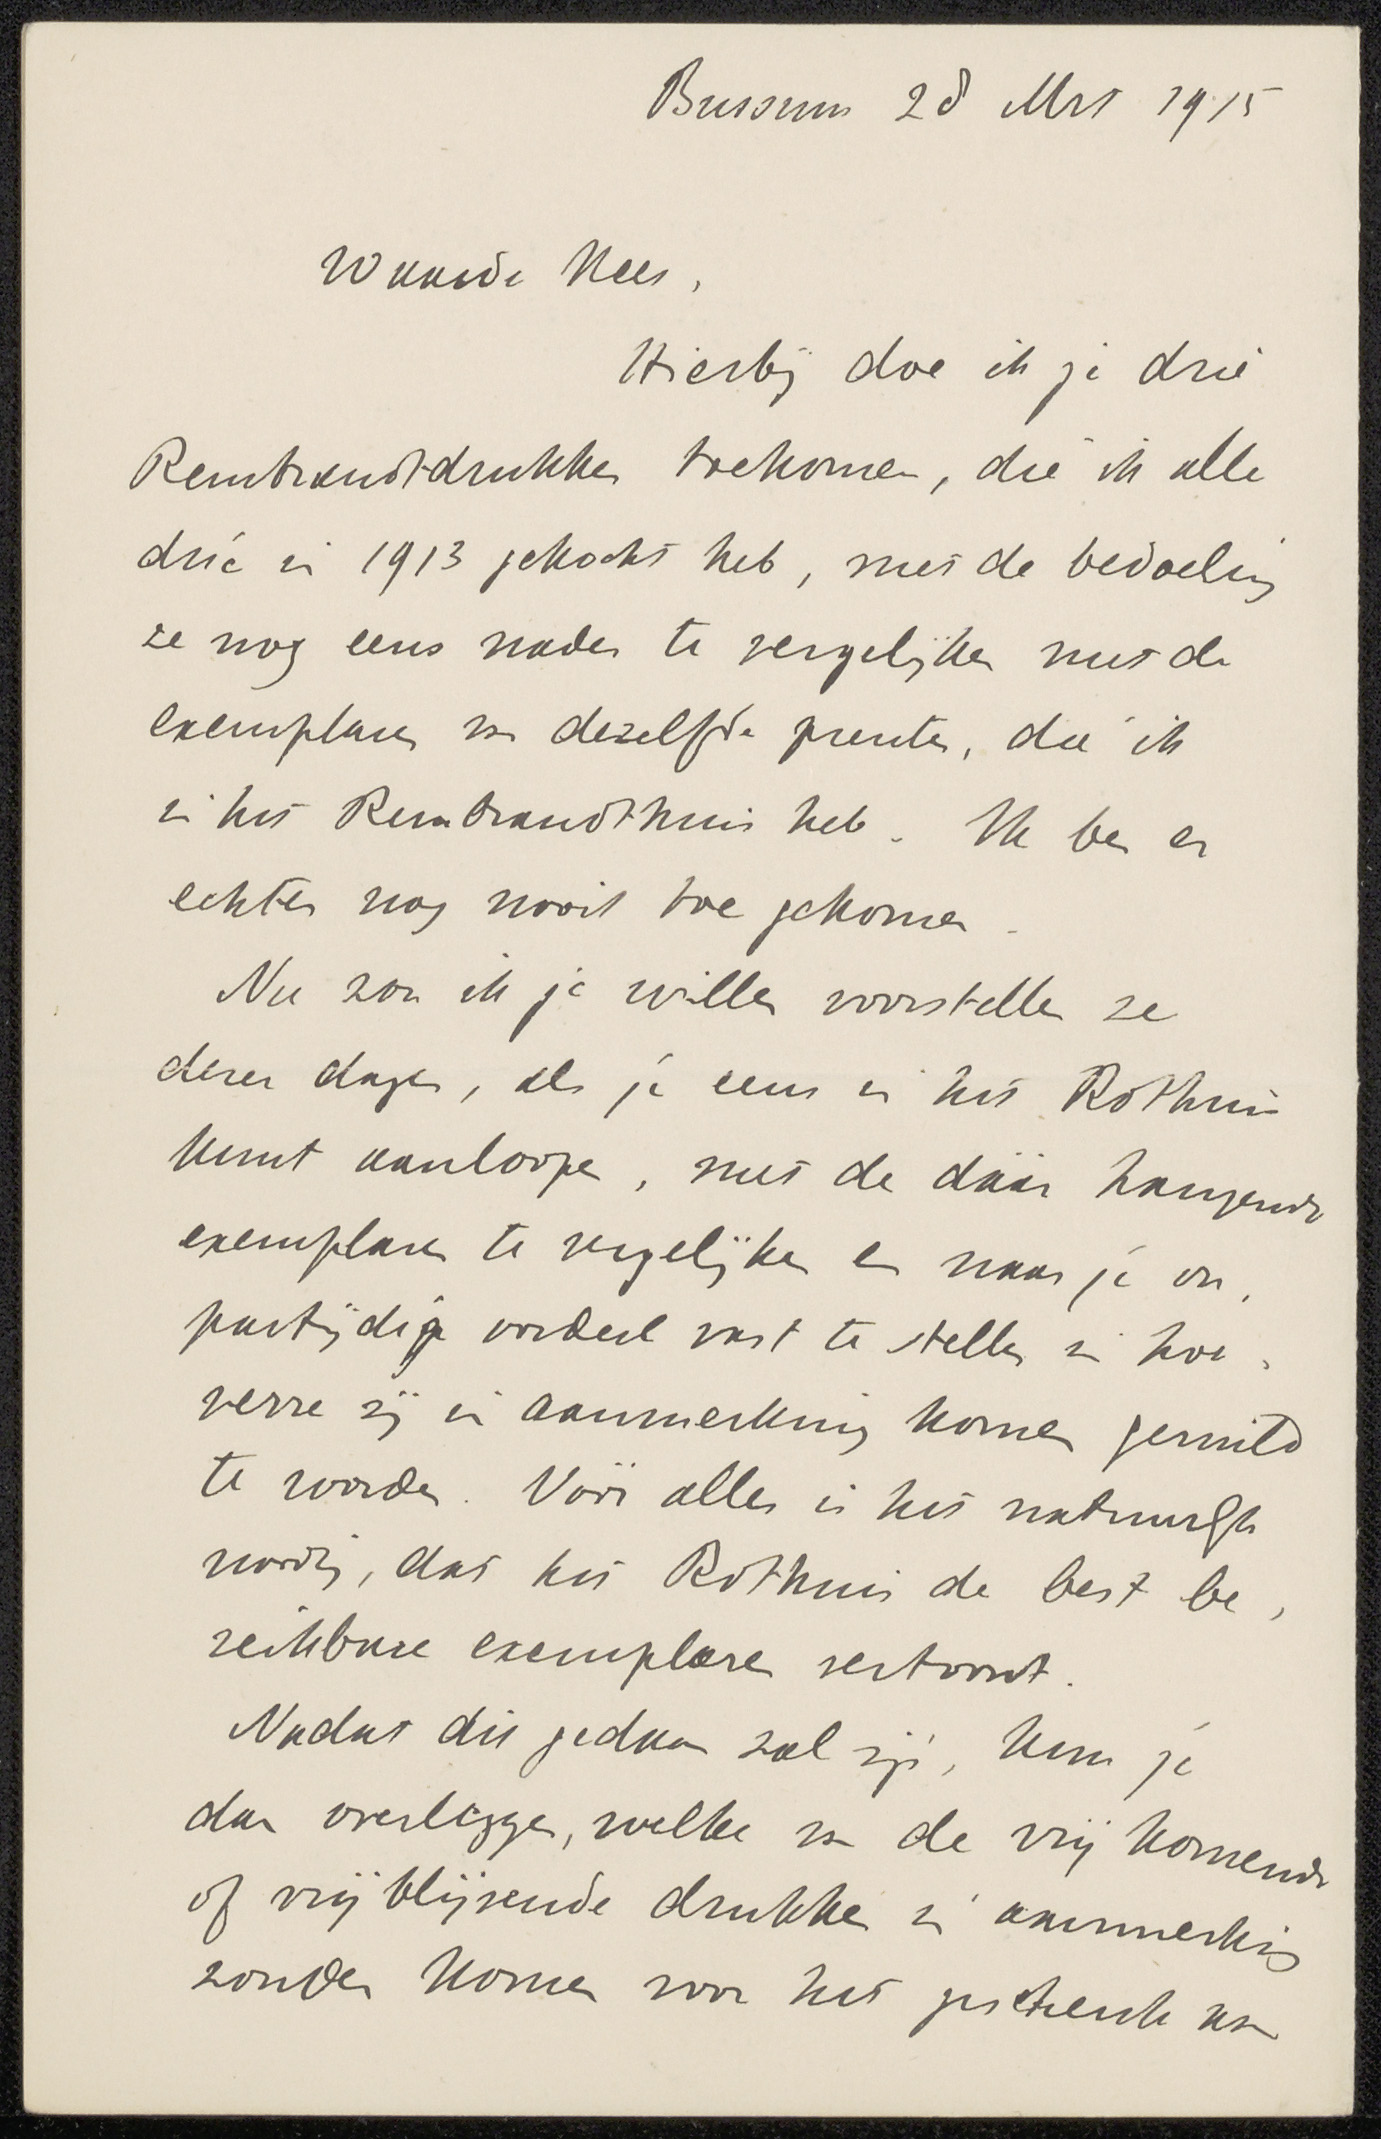 Bussum 28 Mrt 1915
Waarde Kees,
Hierbij doe ik je drie
Rembrandtdrukken toekomen, die ik alle
drie in 1913 gekocht heb, met de bedoeling
ze nog eens nader te vergelijken met de
exemplaren van dezelfde prenten, die ik
in het Rembrandthuis heb. Ik ben er
echter nog nooit toe gekomen.
Nu zou ik je willen voorstellen ze
dezer dagen, als je eens in het Rdthuis
kunt aanloopen, met de dáár hangende
exemplaren te vergelijken en naar je on-
partijdig oordeel vast te stellen in hoe-
verre zij in aanmerking komen geruild
te worden. Vóór alles is het natuurlijk
noodig, dat het Rdthuis de best be-
reikbare exemplaren vertoont.
Nadat dit gedaan zal zijn, kun je
dan overleggen, welke van de vrij komende
of vrijblijvende drukken in aanmerking
zouden komen voor het geschenk aan